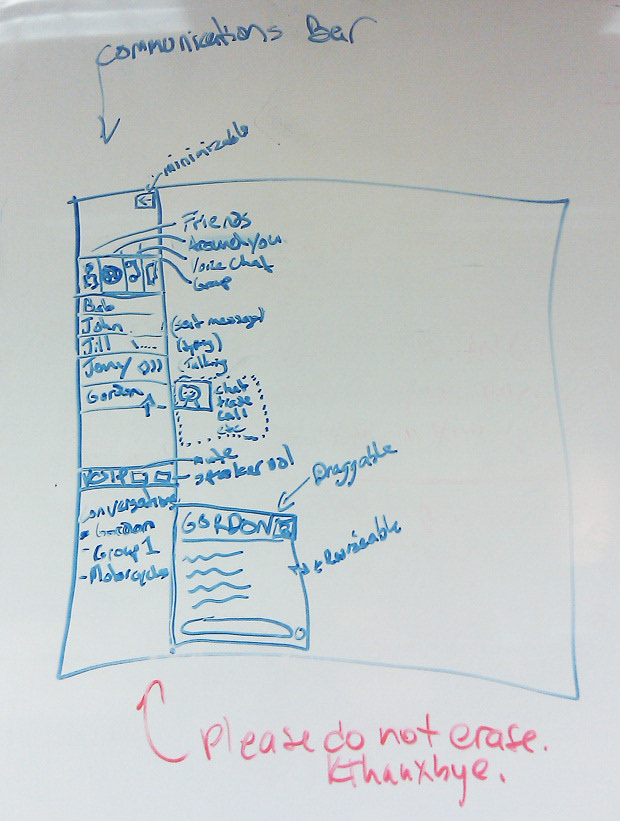 Communications Bar
minimizable
Friends
Around you
Voice Chat
Group
Bob
John (sent message)
Jill (typing)
Jonny Talking
Gordon
chat
trade
call
etc
VOIP mute
speaker vol
Conversations
- Gordon
- Group 1
- Motorcycles
Draggable
GORDON
Resizeable
Please do not erase.
kThanxbye.